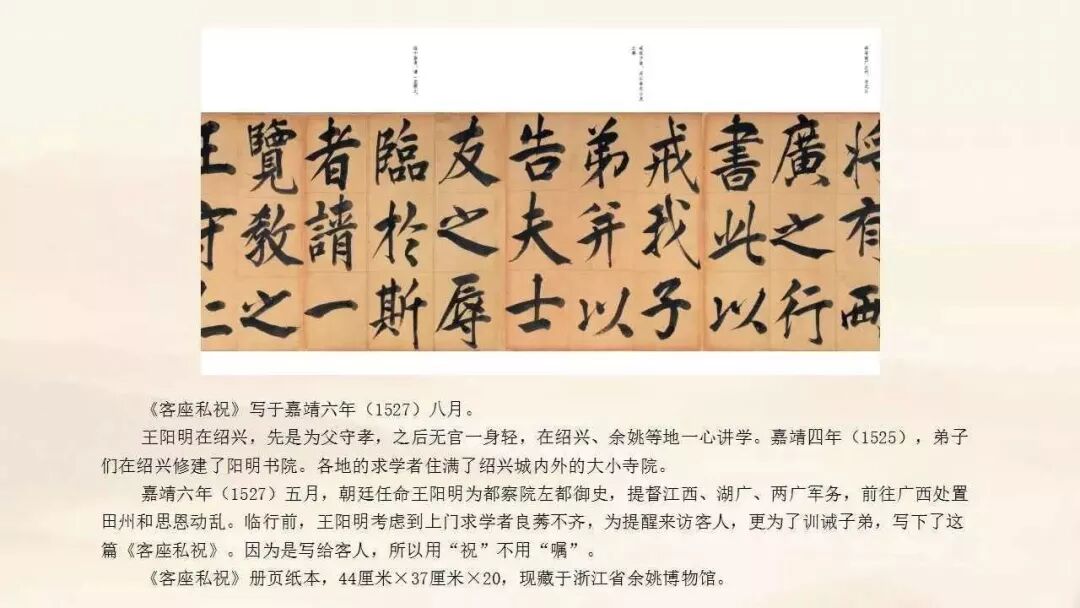 將有兩
廣之行
書此以
戒我子
弟并以
告夫士
友之辱
臨於斯
者請一
覽教之
王守仁
《客座私祝》写于嘉靖六年（1527）八月。
王阳明在绍兴，先是为父守孝，之后无官一身轻，在绍兴、余姚等地一心讲学。嘉靖四年（1525），弟子
们在绍兴修建了阳明书院。各地的求学者住满了绍兴城内外的大小寺院。
嘉靖六年（1527）五月，朝廷任命王阳明为都察院左都御史，提督江西、湖广、两广军务，前往广西处置
田州和思恩动乱。临行前，王阳明考虑到上门求学者良莠不齐，为提醒来访客人，更为了训诫子弟，写下了这
篇《客座私祝》。因为是写给客人，所以用“祝”不用“嘱”。
《客座私祝》册页纸本，44厘米×37厘米×20，现藏于浙江省余姚博物馆。